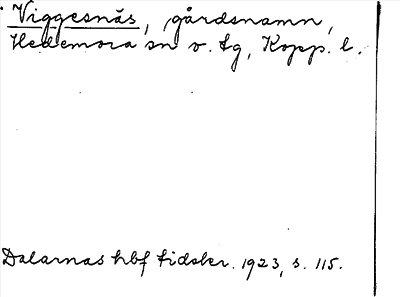 Viggesnäs, gårdsnamn,
Hedemora sn o. tg, Kopp. l.
Dalarnas hbf tidskr. 1923, s. 115.